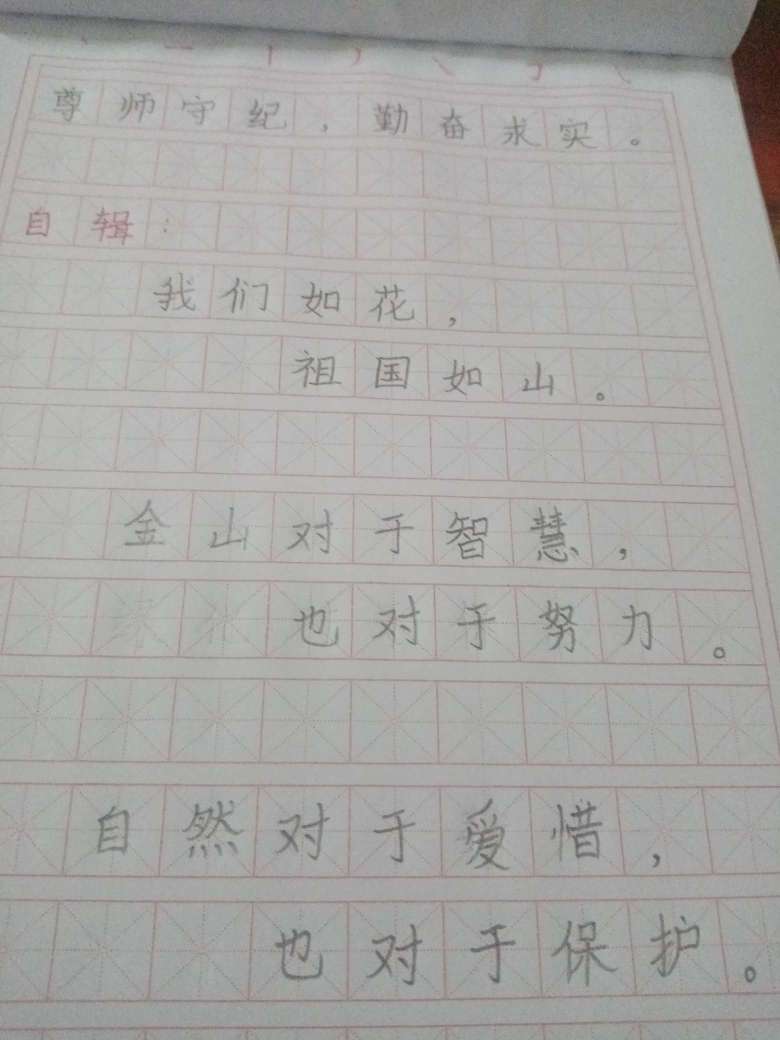 尊师守纪，勤奋求实。
自辑：
我们如花，
祖国如山。
金山对于智慧，
也对于努力。
自然对于爱惜，
也对于保护。